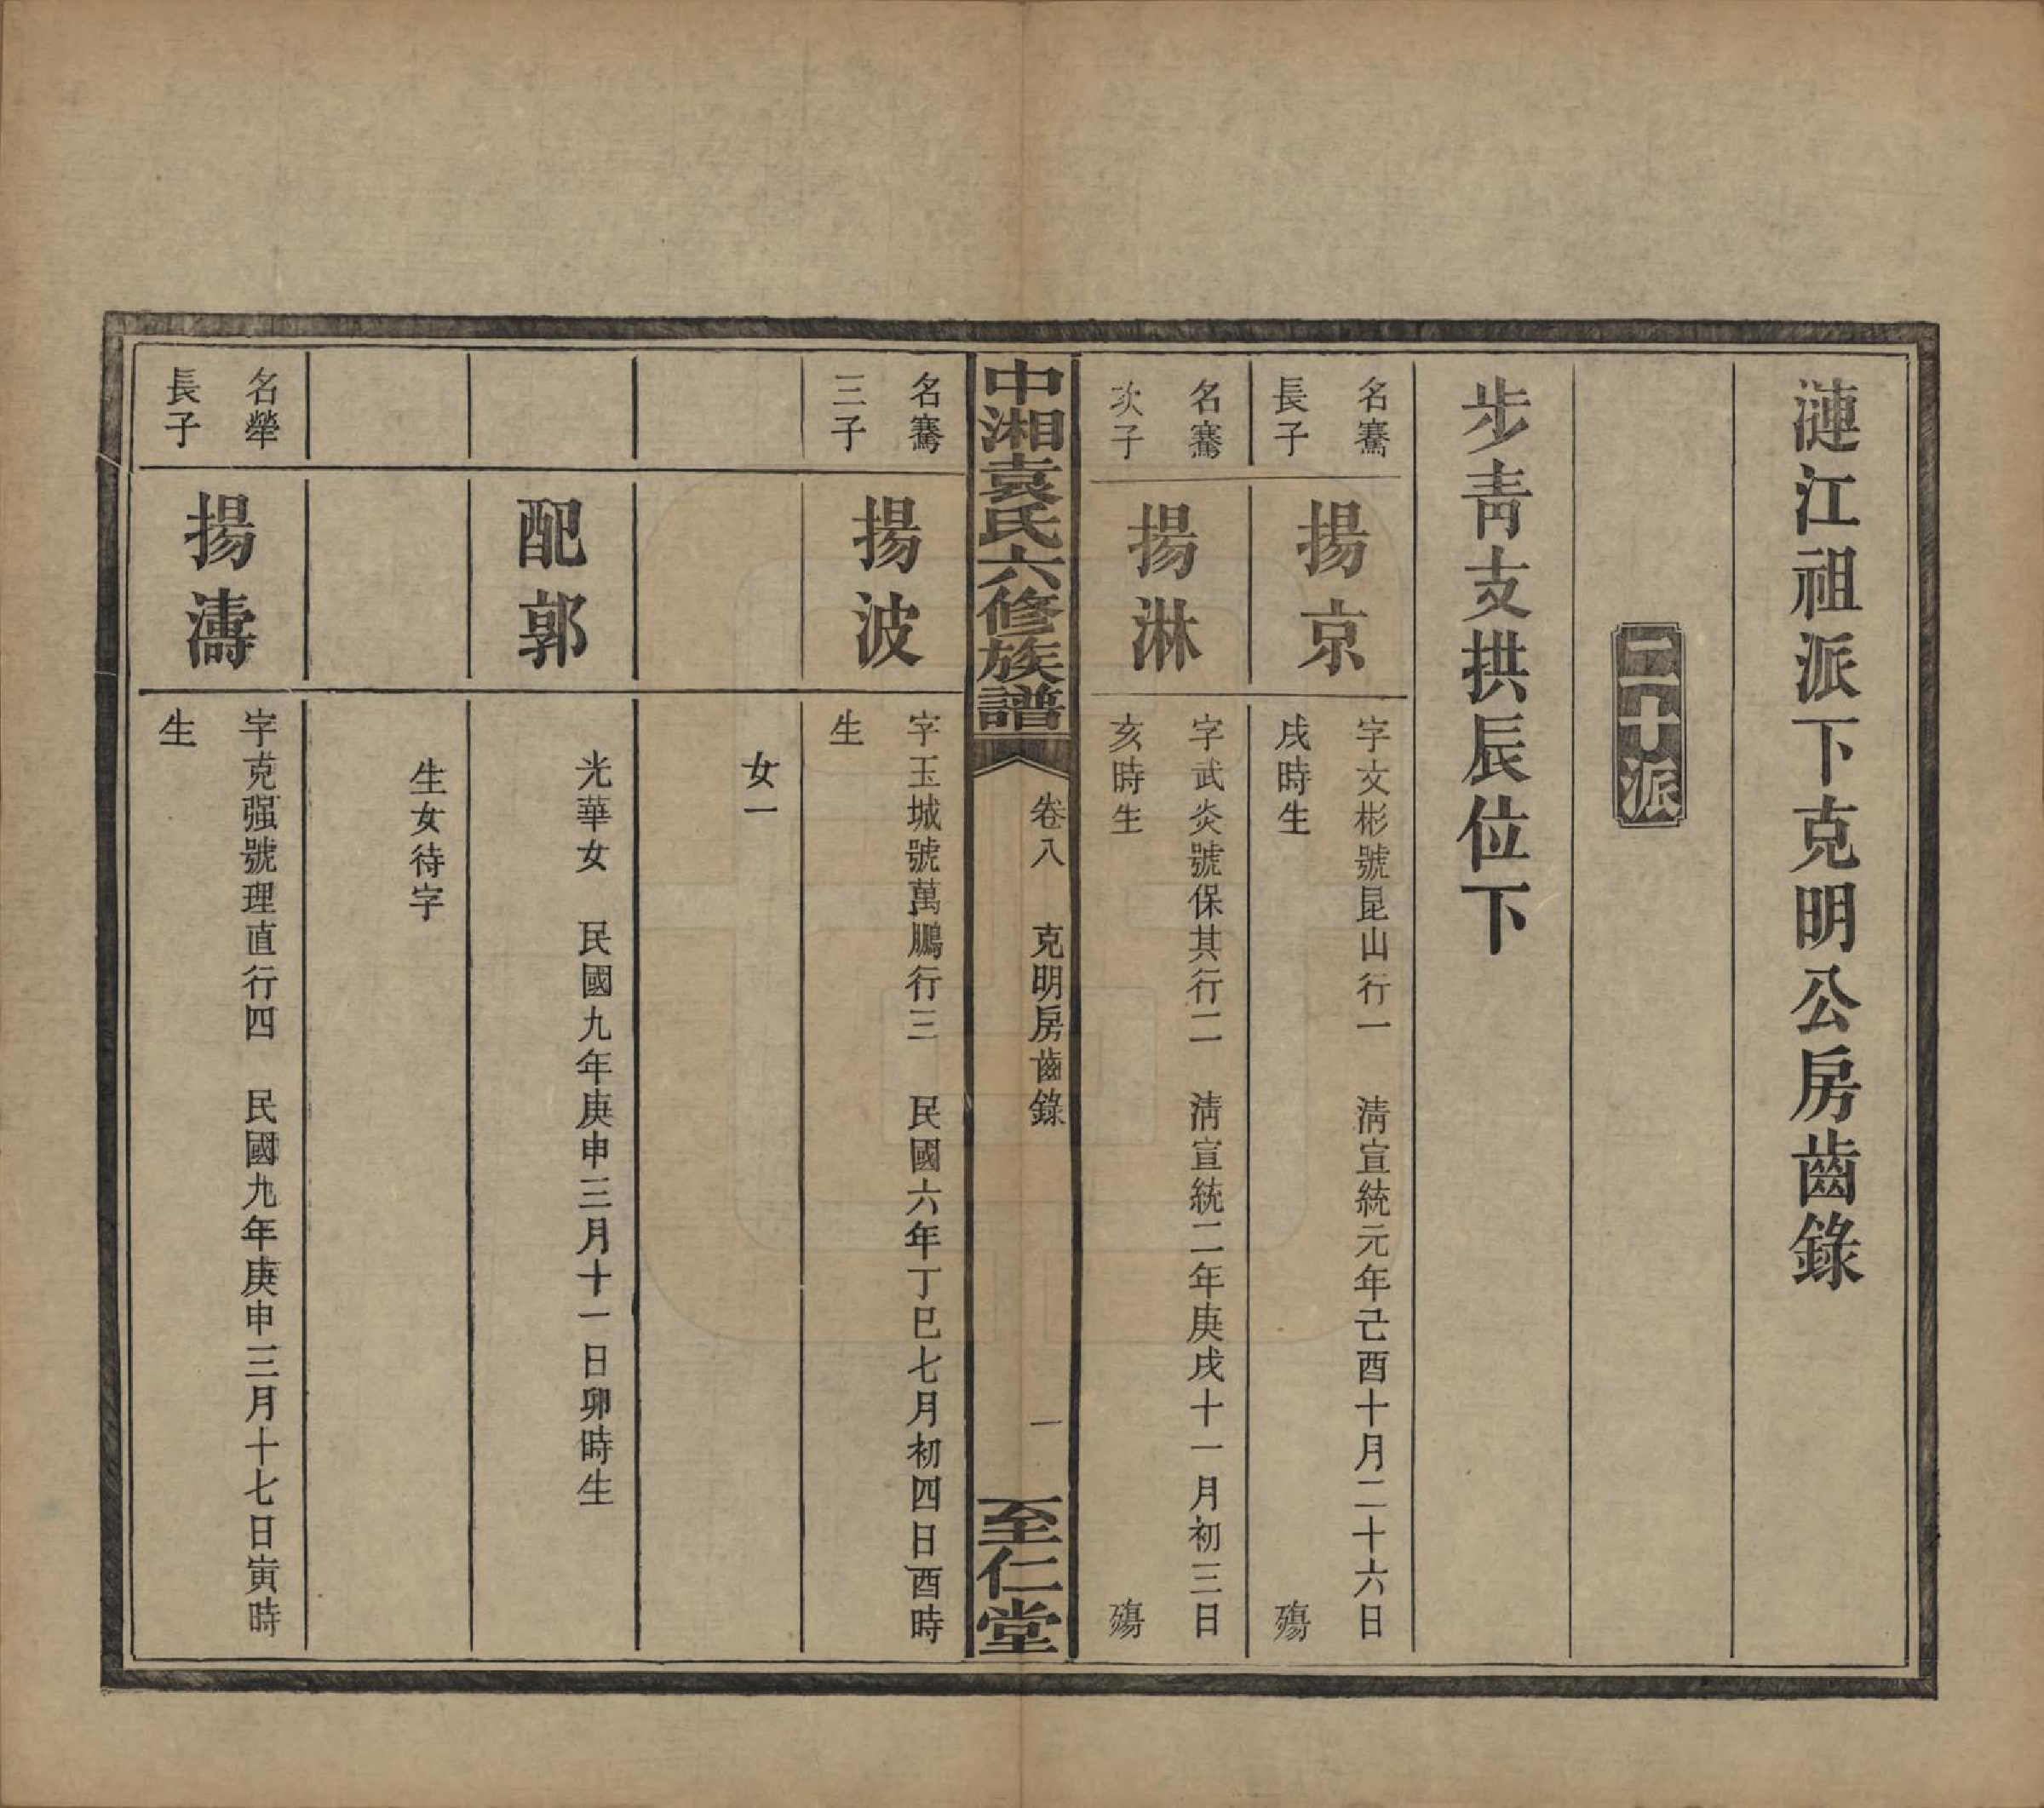 漣江祖派下克明公房齒錄
二十派
步靑支拱辰位下
名騫
長子
揚京
字文彬號昆山行一　淸宣統元年己酉十月二十六日
戌時生　殤
名騫
次子
揚淋
字武炎號保其行二　淸宣統二年庚戌十一月初三日
亥時生　殤
中湘袁氏六修族譜
卷八　克明房齒錄　一
至仁堂
名騫
三子
揚波
字玉城號萬鵬行三　民國六年丁巳七月初四日酉時
生
女一
配郭
光華女　民國九年庚申三月十一日卯時生
生女待字
名犖
長子
揚濤
字克强號理直行四　民國九年庚申三月十七日寅時
生